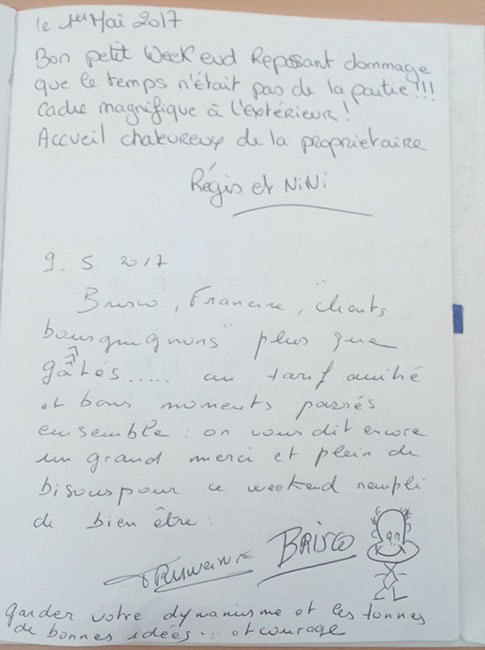 le 1er Mai 2017
Bon petit Week end Reposant dommage
que le temps n'était pas de la partie !!!
Cadre magnifique à l'extérieur !
Accueil chaleureux de la proprietaire
Régis et NiNi
9. 5. 2017
Brisco, Francine, clients
bourguignons plus que
gâtés..... au tarif amitié
et bons moments passés
ensemble : on vous dit encore
un grand merci et plein de
bisous pour ce weekend rempli
de bien être.
BRISCO
garder votre dynamisme et les tonnes
de bonnes idées... et courage